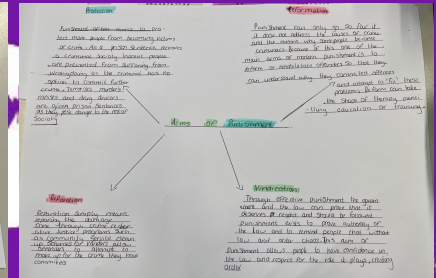 Protection
Punishment often aims to pro-
tect more people from becoming victims
of crime. As a prison sentence removes
a criminal society innocent people
are prevented from suffering from
wrongdoing as the criminal has no
option to commit further
crime. Terrorists murderers
rapists and drug dealers
are given sentences
as they pose danger to the rest of
Society
Reformation
Punishment can only go so far if
it does not address the causes of crime
and the reasons why some people become
criminals. Because of this one of the
main aims of modern punishment is to
reform or rehabilitate offenders so that they
can understand why they committed offences
and attempt to 'fix' these
problems. Reform can take
the shape of therapy, counc-
illing education or training.
Aims of Punishment
Reparation
Reparation simply means
repairing the damage
done through crime
justice programs such
as community service clean
up schemes for vandals allow
offenders to attempt to
make up for the crime they have
committed
Vindication
Through effective punishment the govern
ment and the law can prove that it
deserves respect and should be followed
punishment exists to prove authority of
the law and to remind people that without
law and order chaos. This aim of
punishment allows people to have confidence in
the law and respect for the role it plays creating
order